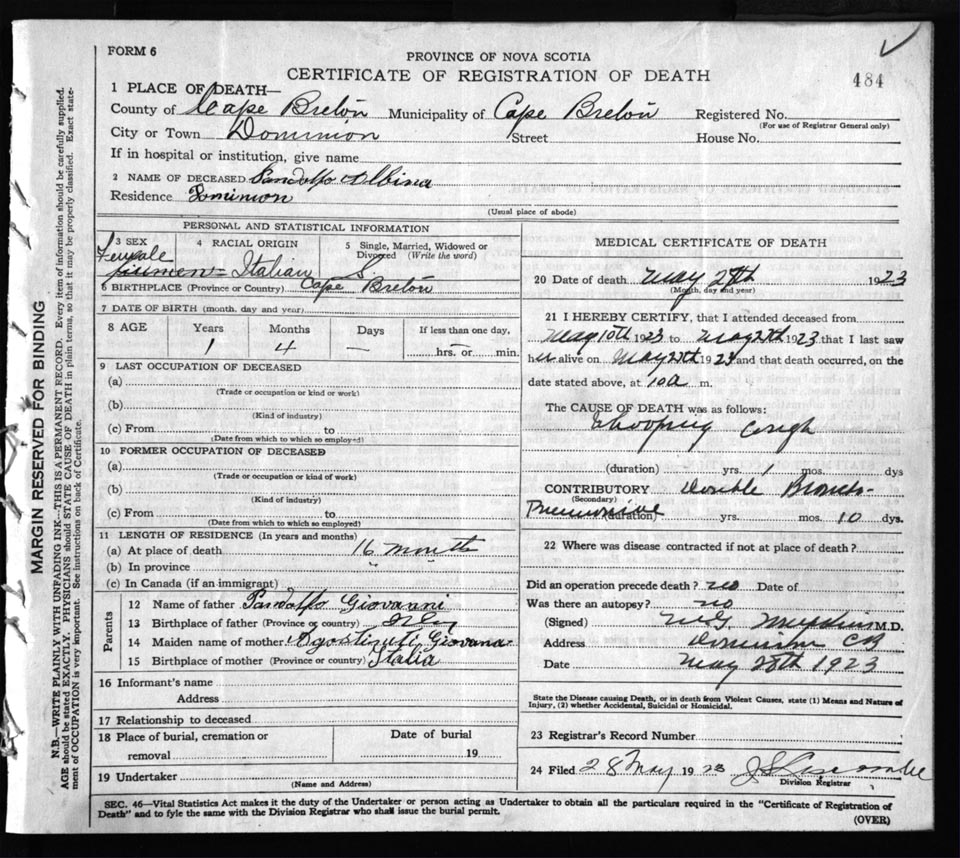 FORM 6
PROVINCE OF NOVA SCOTIA
CERTIFICATE OF REGISTRATION OF DEATH
484
1 PLACE OF DEATH—
County of Cape Breton Municipality of Cape Breton Registered No.
(For use of Registrar General only)
City or Town Dominion Street House No.
If in hospital or institution, give name
2 NAME OF DECEASED Pandolfo Albina
Residence Dominion
(Usual place of abode)
PERSONAL AND STATISTICAL INFORMATION
3 SEX 4 RACIAL ORIGIN 5 Single, Married, Widowed or Divorced (Write the word)
Female Italian S.
6 BIRTHPLACE (Province or Country) Cape Breton
7 DATE OF BIRTH (month, day and year)
8 AGE Years Months Days If less than one day,
1 4 — hrs. or min.
9 LAST OCCUPATION OF DECEASED
(a)
(Trade or occupation or kind or work)
(b)
(Kind of industry)
(c) From to
(Date from which to which so employed)
10 FORMER OCCUPATION OF DECEASED
(a)
(Trade or occupation or kind of work)
(b)
(Kind of industry)
(c) From to
(Date from which to which so employed)
11 LENGTH OF RESIDENCE (In years and months)
(a) At place of death 16 months
(b) In province " "
(c) In Canada (if an immigrant)
Parents
12 Name of father Pandolfo Giovanni
13 Birthplace of father (Province or country)
14 Maiden name of mother Giovana
15 Birthplace of mother (Province or country) Italia
16 Informant's name
Address
17 Relationship to deceased
18 Place of burial, cremation or removal Date of burial
19
19 Undertaker
(Name and Address)
MEDICAL CERTIFICATE OF DEATH
20 Date of death May 28th 1923
(Month, day and year)
21 I HEREBY CERTIFY, that I attended deceased from
May 10th 1923 to May 27th 1923 that I last saw
her alive on May 27th 1923 and that death occurred, on the
date stated above, at 10 a m.
The CAUSE OF DEATH was as follows:
Whooping Cough
(duration) yrs. 1 mos. dys
CONTRIBUTORY Double Broncho-
(Secondary)
Pneumonia (duration) yrs. mos. 10 dys.
22 Where was disease contracted if not at place of death?
Did an operation precede death? no Date of
Was there an autopsy? no
(Signed) M.D.
Address Dominion C B
Date May 28th 1923
State the Disease causing Death, or in death from Violent Causes, state (1) Means and Nature of
Injury, (2) whether Accidental, Suicidal or Homicidal.
23 Registrar's Record Number
24 Filed 28 May 1923
Division Registrar
SEC. 46—Vital Statistics Act makes it the duty of the Undertaker or person acting as Undertaker to obtain all the particulars required in the "Certificate of Registration of
Death" and to fyle the same with the Division Registrar who shall issue the burial permit.
(OVER)
MARGIN RESERVED FOR BINDING
N.B.—WRITE PLAINLY WITH UNFADING INK—THIS IS A PERMANENT RECORD. Every item of information should be carefully supplied.
AGE should be stated EXACTLY. PHYSICIANS should STATE CAUSE OF DEATH in plain terms, so that it may be properly classified. Exact state-
ment of OCCUPATION is very important. See instructions on back of Certificate.